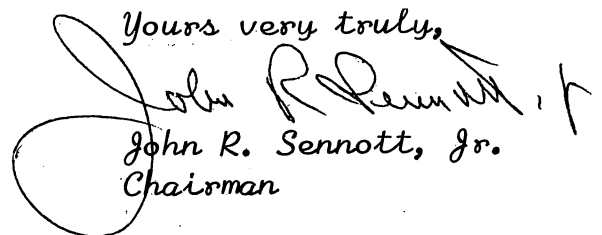 Yours very truly,
John R Sennott, Jr
John R. Sennott, Jr.
Chairman